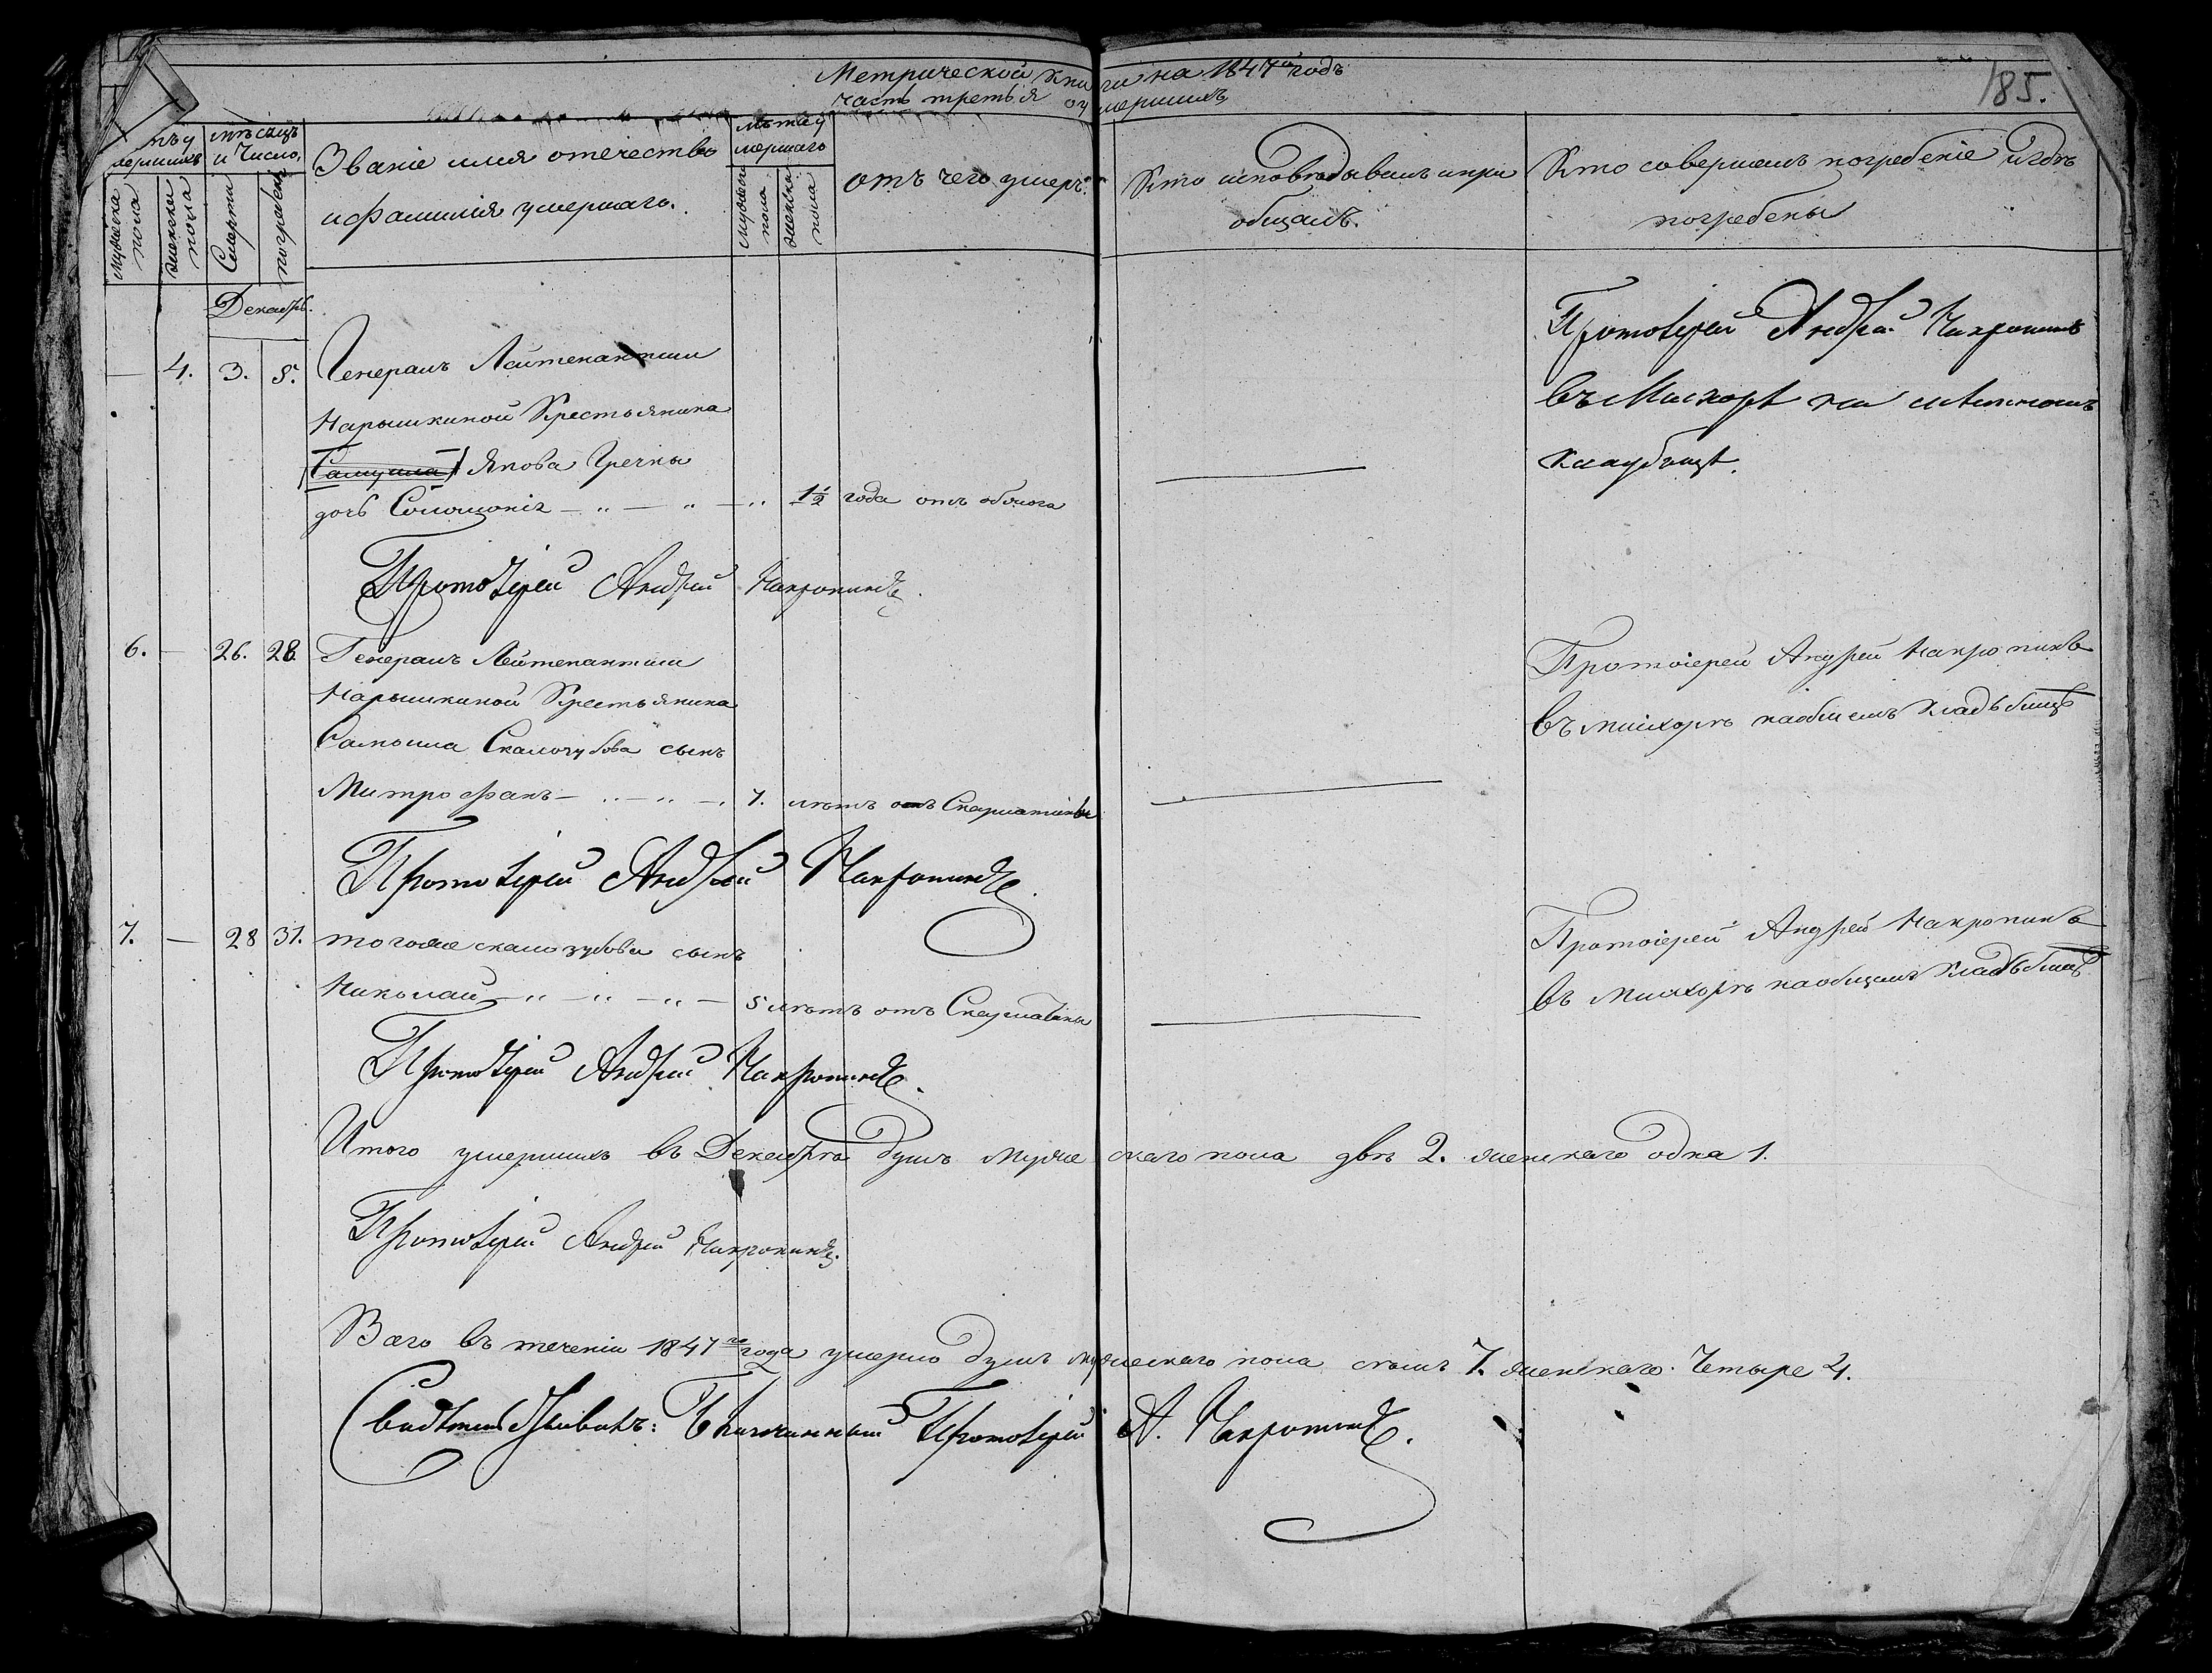 Метрической книги на 1847й годъ
часть третья о умершихъ
185.
мѣсяцъ
и число,
Званіе имя отечество
и фамилія умершаго.
Мужеска пола
женска пола
Смерти
погребен.
лѣта у
мершаго
Мужеска пола
женска пола
отъ чего умеръ.
Кто исповѣдывалъ и прі
общалъ.
Кто совершалъ погребеніе и гдѣ
погребены
Декабрь.
— 4. 3. 5. Генералъ Лейтенантши
Нарышкиной Крестьянина
Якова Гречки
дочь Соломонія 1½ года отъ
Протоіерей Андрей
въ Мисхорѣ на
Кладбищѣ.
Протоіерей Андрей Накропинъ
6. — 26. 28. Генералъ Лейтенантши
Нарышкиной Крестьянина
Самоила Скалозубова сынъ
Митрофанъ 7. лѣтъ отъ Скарлатины
Протоіерей Андрей Накропинъ
въ мисхорѣ на общемъ Кладьбищѣ
Протоіерей Андрей Накропинъ
7. — 28 31. тогоже скалозубова сынъ
Николай 5 лѣтъ отъ Скарлатины
Протоіерей Андрей Накропинъ
въ мисхорѣ на общемъ Кладьбищѣ
Протоіерей Андрей Накропинъ
Итого умершихъ въ Декабрѣ душъ мужескаго пола двѣ 2. женскаго одна 1.
Протоіерей Андрей Накропинъ.
Всего въ теченіи 1847го года умерло душъ мужескаго пола семь 7. женскаго четыре 4.
Свидѣтельствовалъ: Благочинный Протоіерей А. Накропинъ.